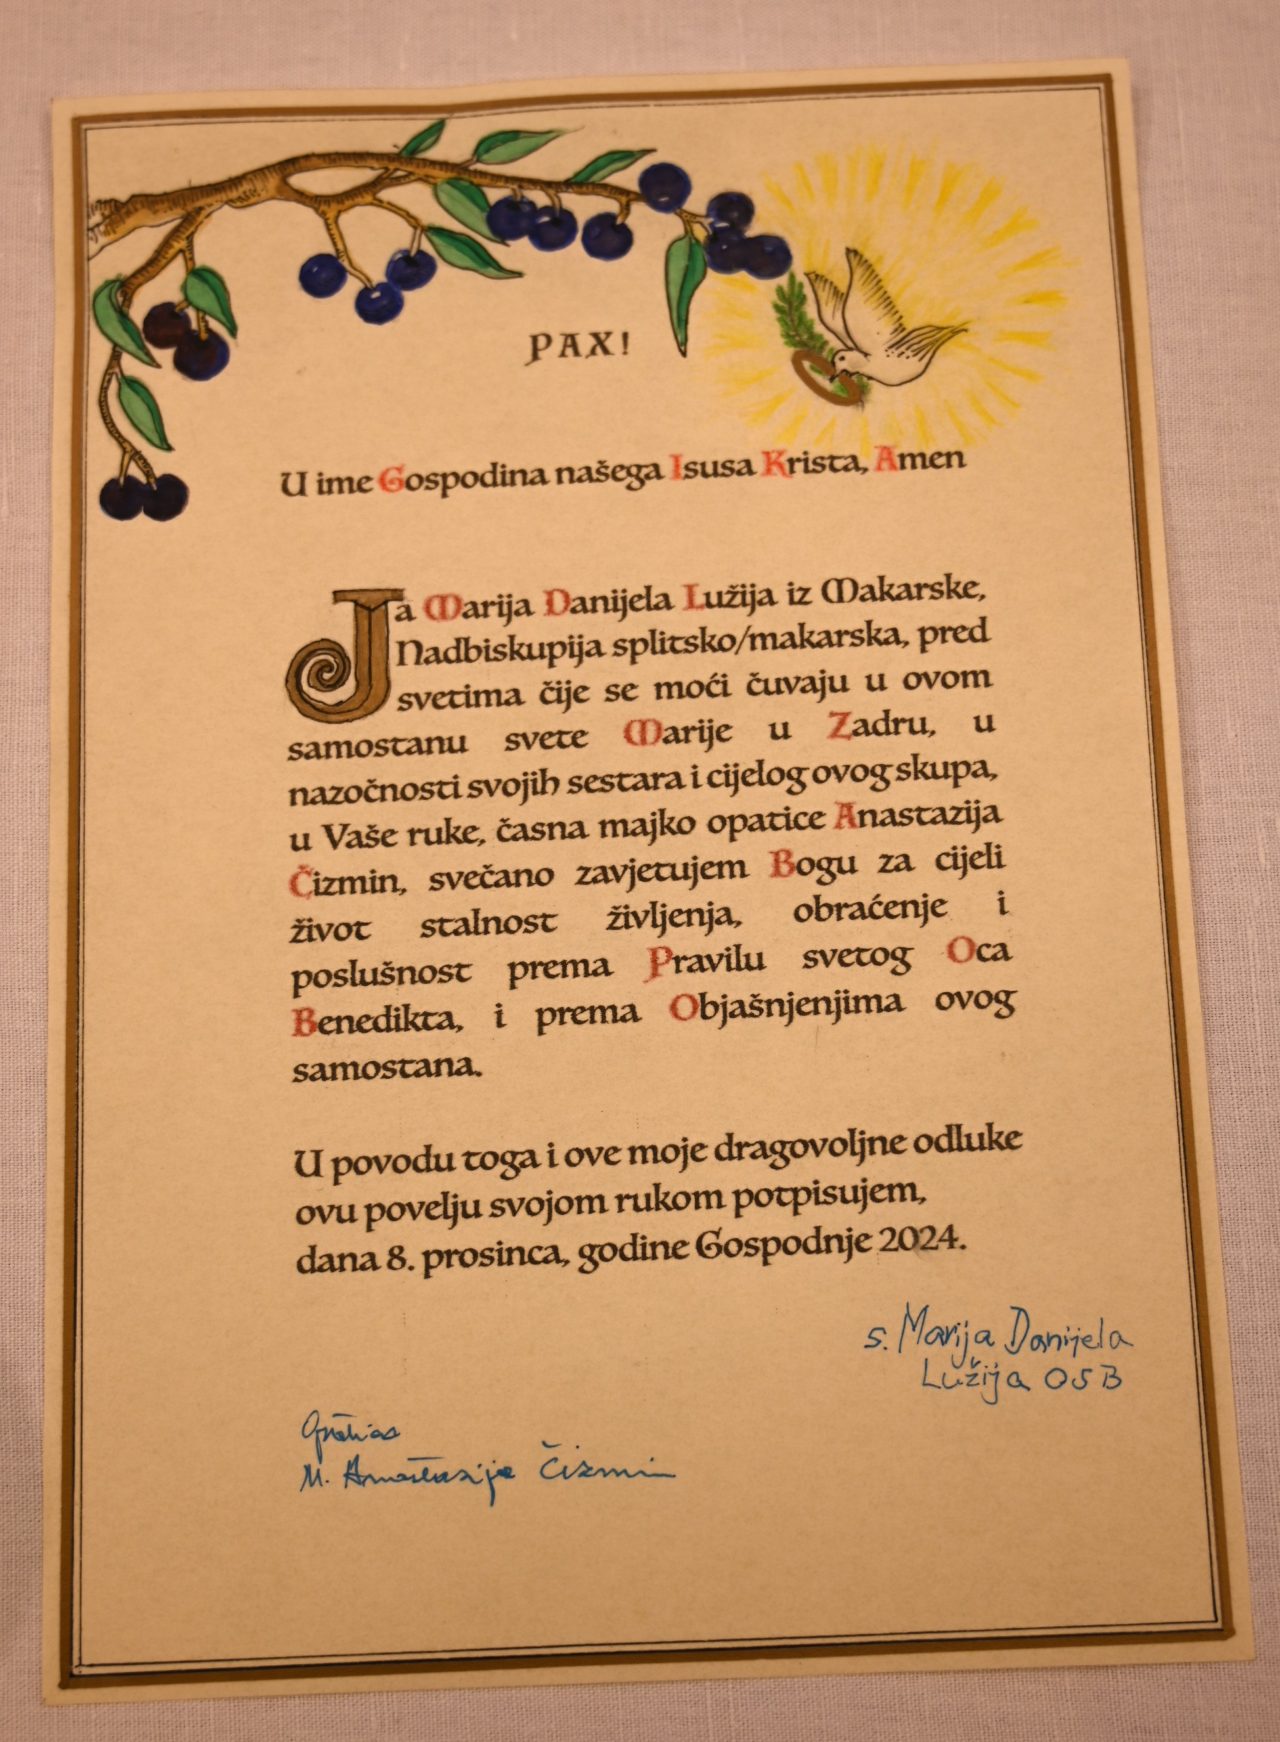 PAX!
U ime Gospodina našega Isusa Krista, Amen
Ja Marija Danijela Lužija iz Makarske,
Nadbiskupija splitsko/makarska, pred
svetima čije se moći čuvaju u ovom
samostanu svete Marije u Zadru, u
nazočnosti svojih sestara i cijelog ovog skupa,
u Vaše ruke, časna majko opatice Anastazija
Čizmin, svečano zavjetujem Bogu za cijeli
život stalnost življenja, obraćenje i
poslušnost prema Pravilu svetog Oca
Benedikta, i prema Objašnjenjima ovog
samostana.
U povodu toga i ove moje dragovoljne odluke
ovu povelju svojom rukom potpisujem,
dana 8. prosinca, godine Gospodnje 2024.
s. Marija Danijela
Lužija OSB
M. Anastazija Čizmin